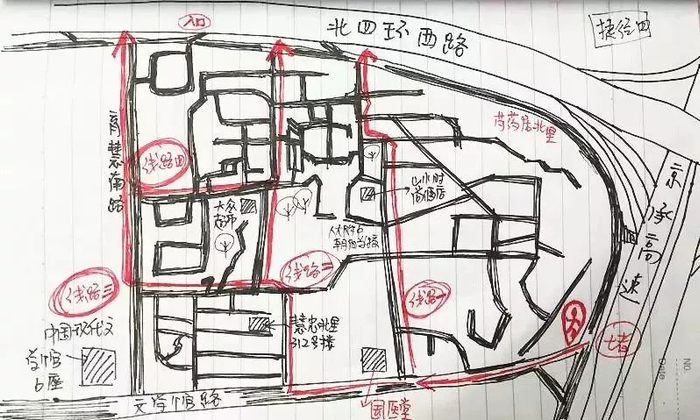 入口
北四环西路
捷径四
芍药居北里
育慧南路
线路四
京承高速
大众
超市
山水时
尚酒店
人大附中
朝阳学校
线路二
线路三
线路一
中国现代文
学馆
B座
慧忠北里
312号楼
国医堂
文学馆路
NO.
Date